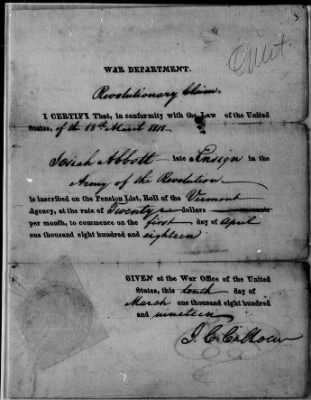 WAR DEPARTMENT.
Revolutionary Claim.
I CERTIFY That, in conformity with the Law of the United
States, of the 18th March 1818.
Josiah Abbott late Ensign in the
Army of the Revolution
is inscribed on the Pension List, Roll of the Vermont
Agency, at the rate of Twenty dollars
per month, to commence on the first day of April
one thousand eight hundred and eighteen
GIVEN at the War Office of the United
States, this tenth day of
March one thousand eight hundred
and nineteen
J. C. Calhoun